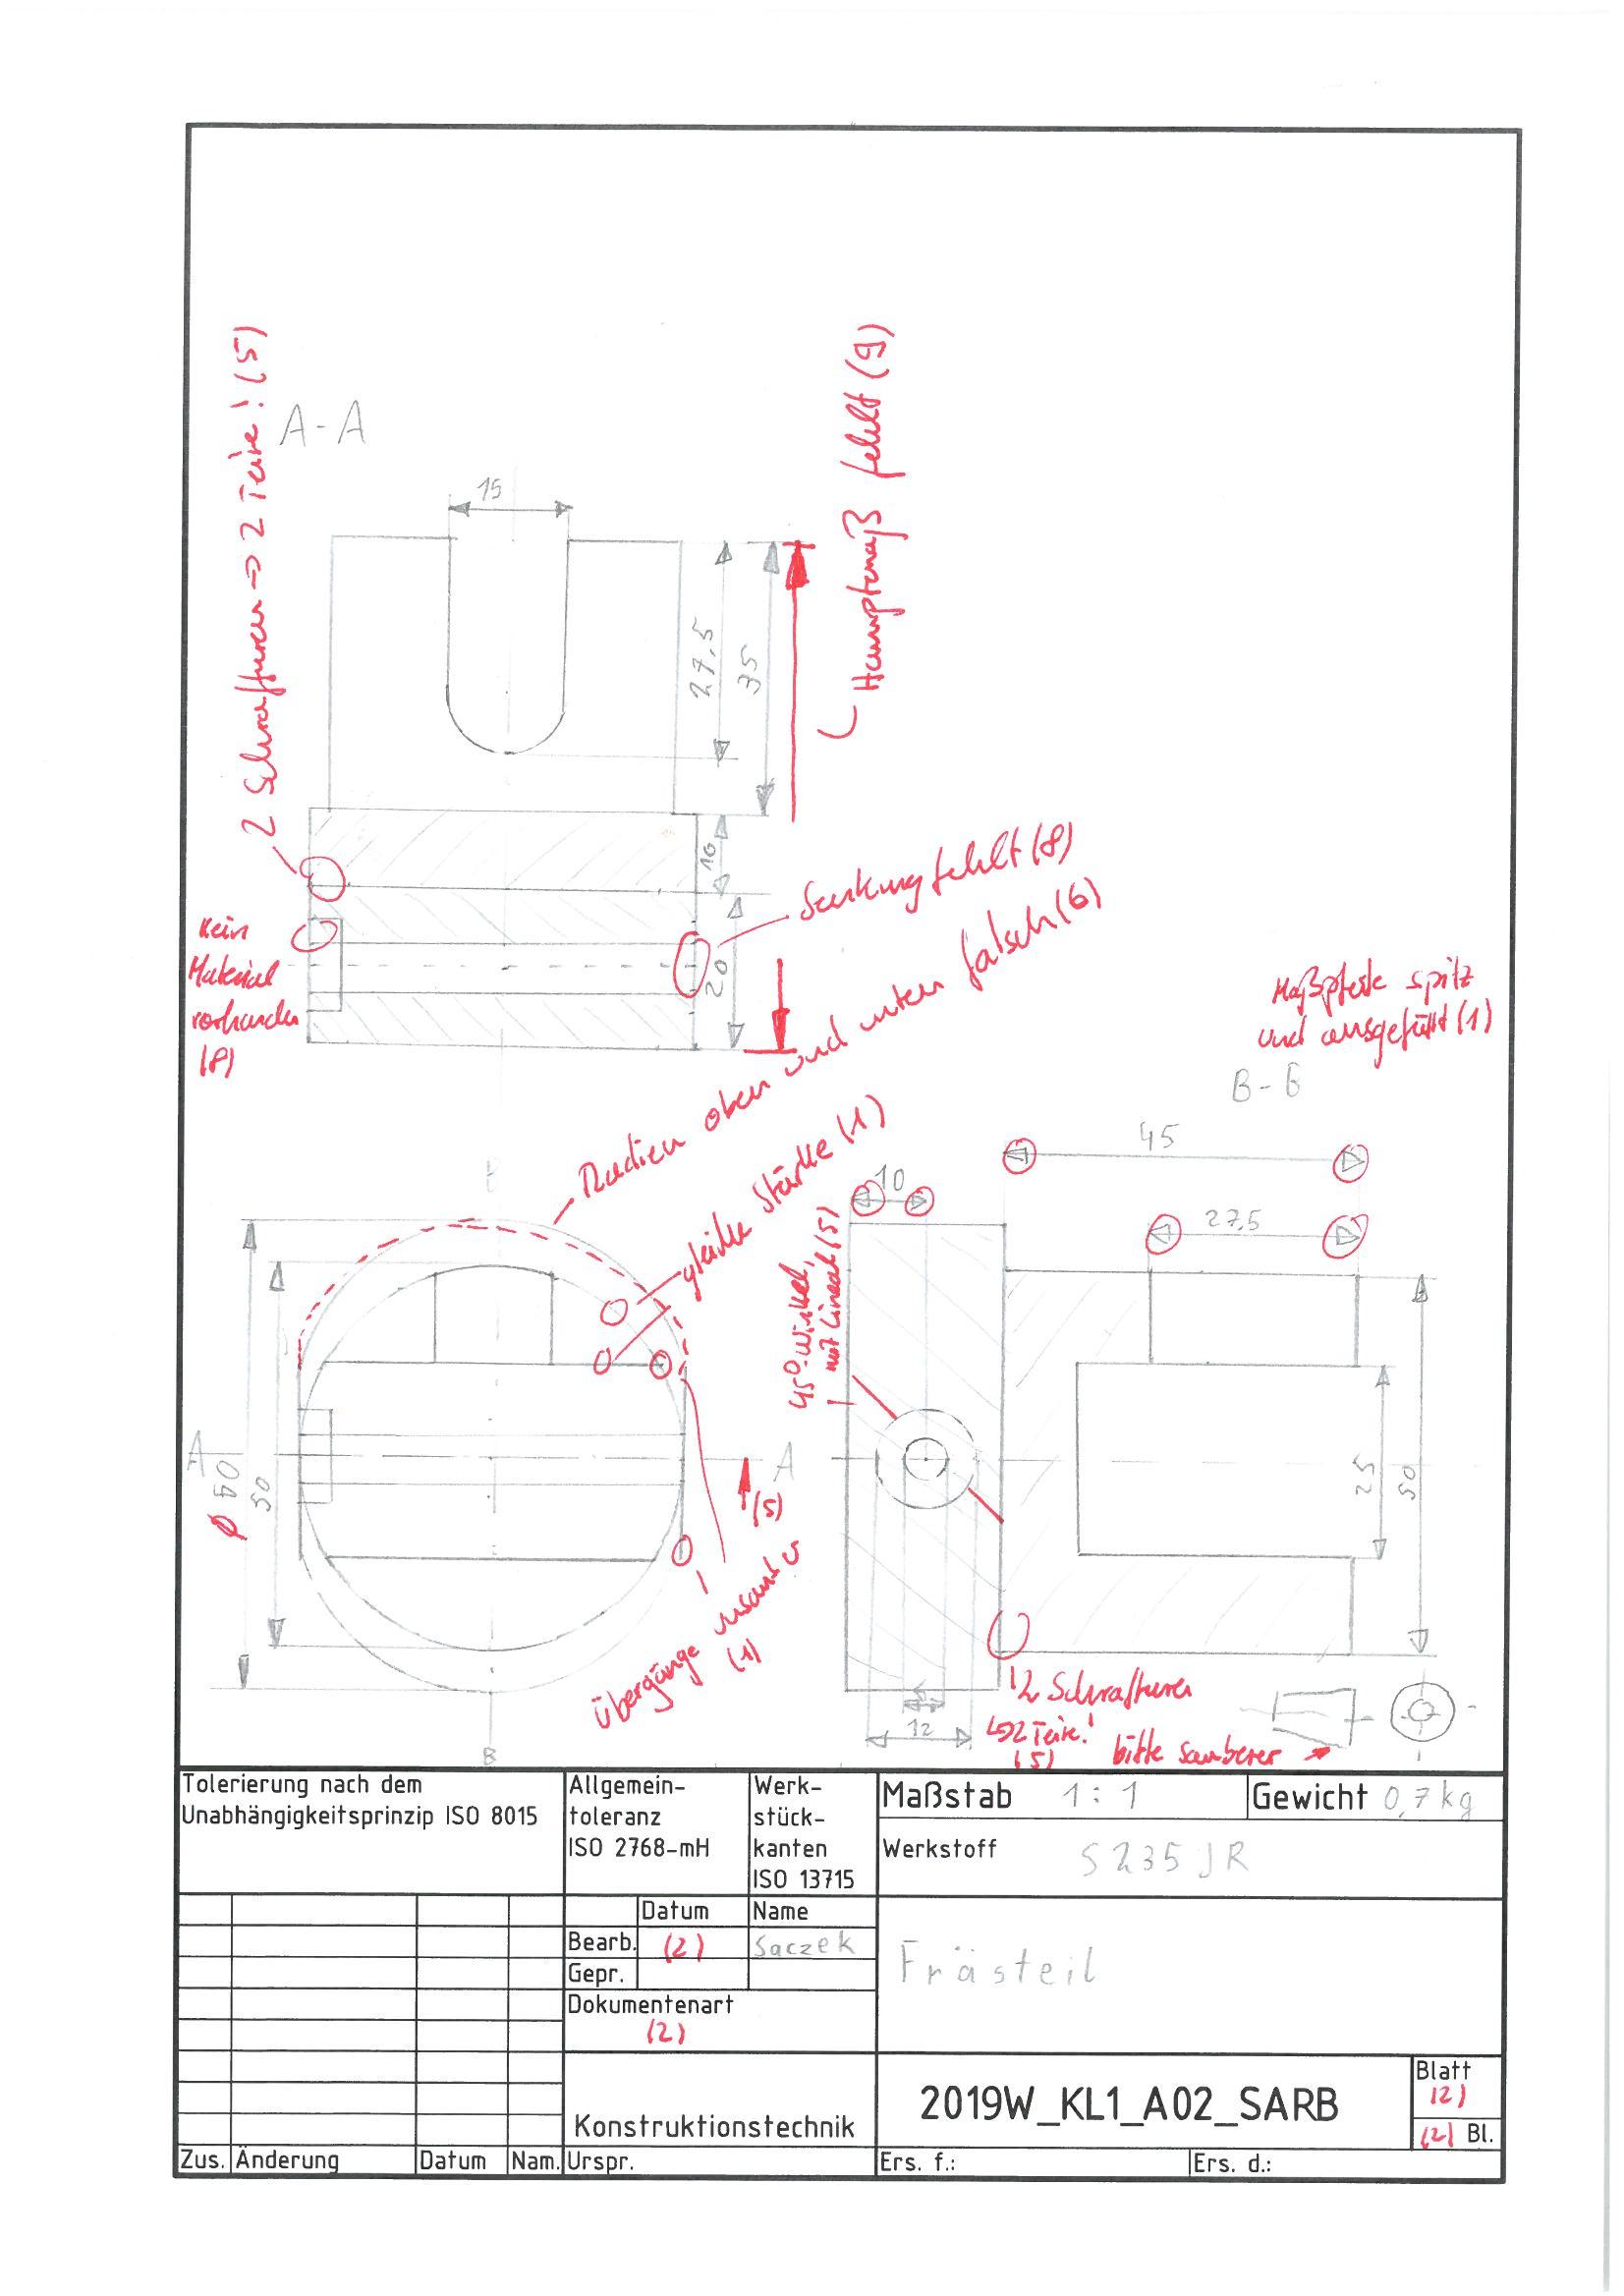 2 Schraffuren → 2 Teile! (5)
A-A
15
27,5
35
Hauptmaß fehlt (9)
10
20
Senkung fehlt (8)
kein
Material
vorhanden
(8)
Radien oben und unten falsch (6)
gleiche Stärke (1)
Maßpfeile spitz
und ausgefüllt (1)
B-B
45
10
27,5
45°-Winkel,
mit Lineal (5)
A
A
(5)
Ø 60
50
25
50
Übergänge
(1)
B
12
2 Schraffuren
↳ 2 Teile!
(5)
bitte sauberer
Tolerierung nach dem
Unabhängigkeitsprinzip ISO 8015
Allgemein-
toleranz
ISO 2768-mH
Werk-
stück-
kanten
ISO 13715
Maßstab 1:1
Gewicht 0,7kg
Werkstoff S235JR
Datum Name
Bearb. (2) Saczek
Gepr.
Dokumentenart
(2)
Frästeil
Konstruktionstechnik
2019W_KL1_A02_SARB
Blatt
(2)
(2) Bl.
Zus. Änderung Datum Nam. Urspr. Ers. f.: Ers. d.: